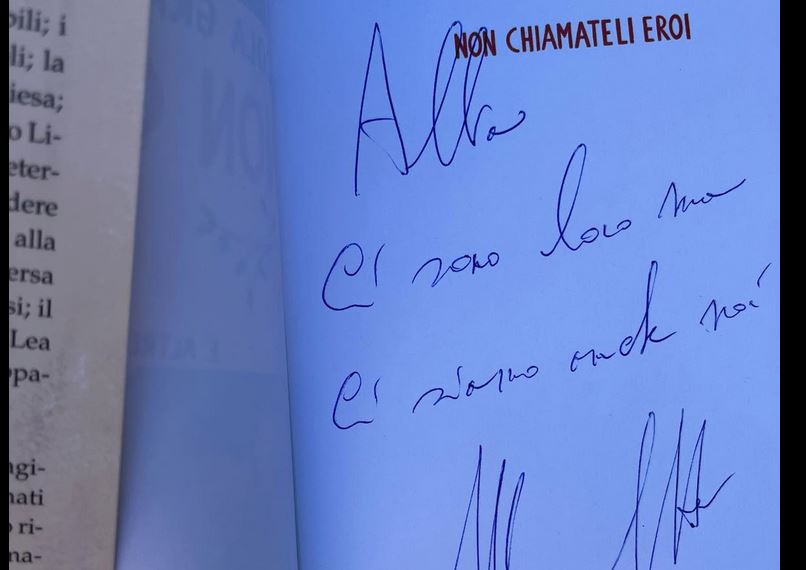 bili; i
li; la
iesa;
o Li-
eter-
dere
alla
ersa
si; il
Lea
pa-
agi-
nati
ri-
na-
NON CHIAMATELI EROI
Alba
Ci sono loro ma
Ci siamo anche noi